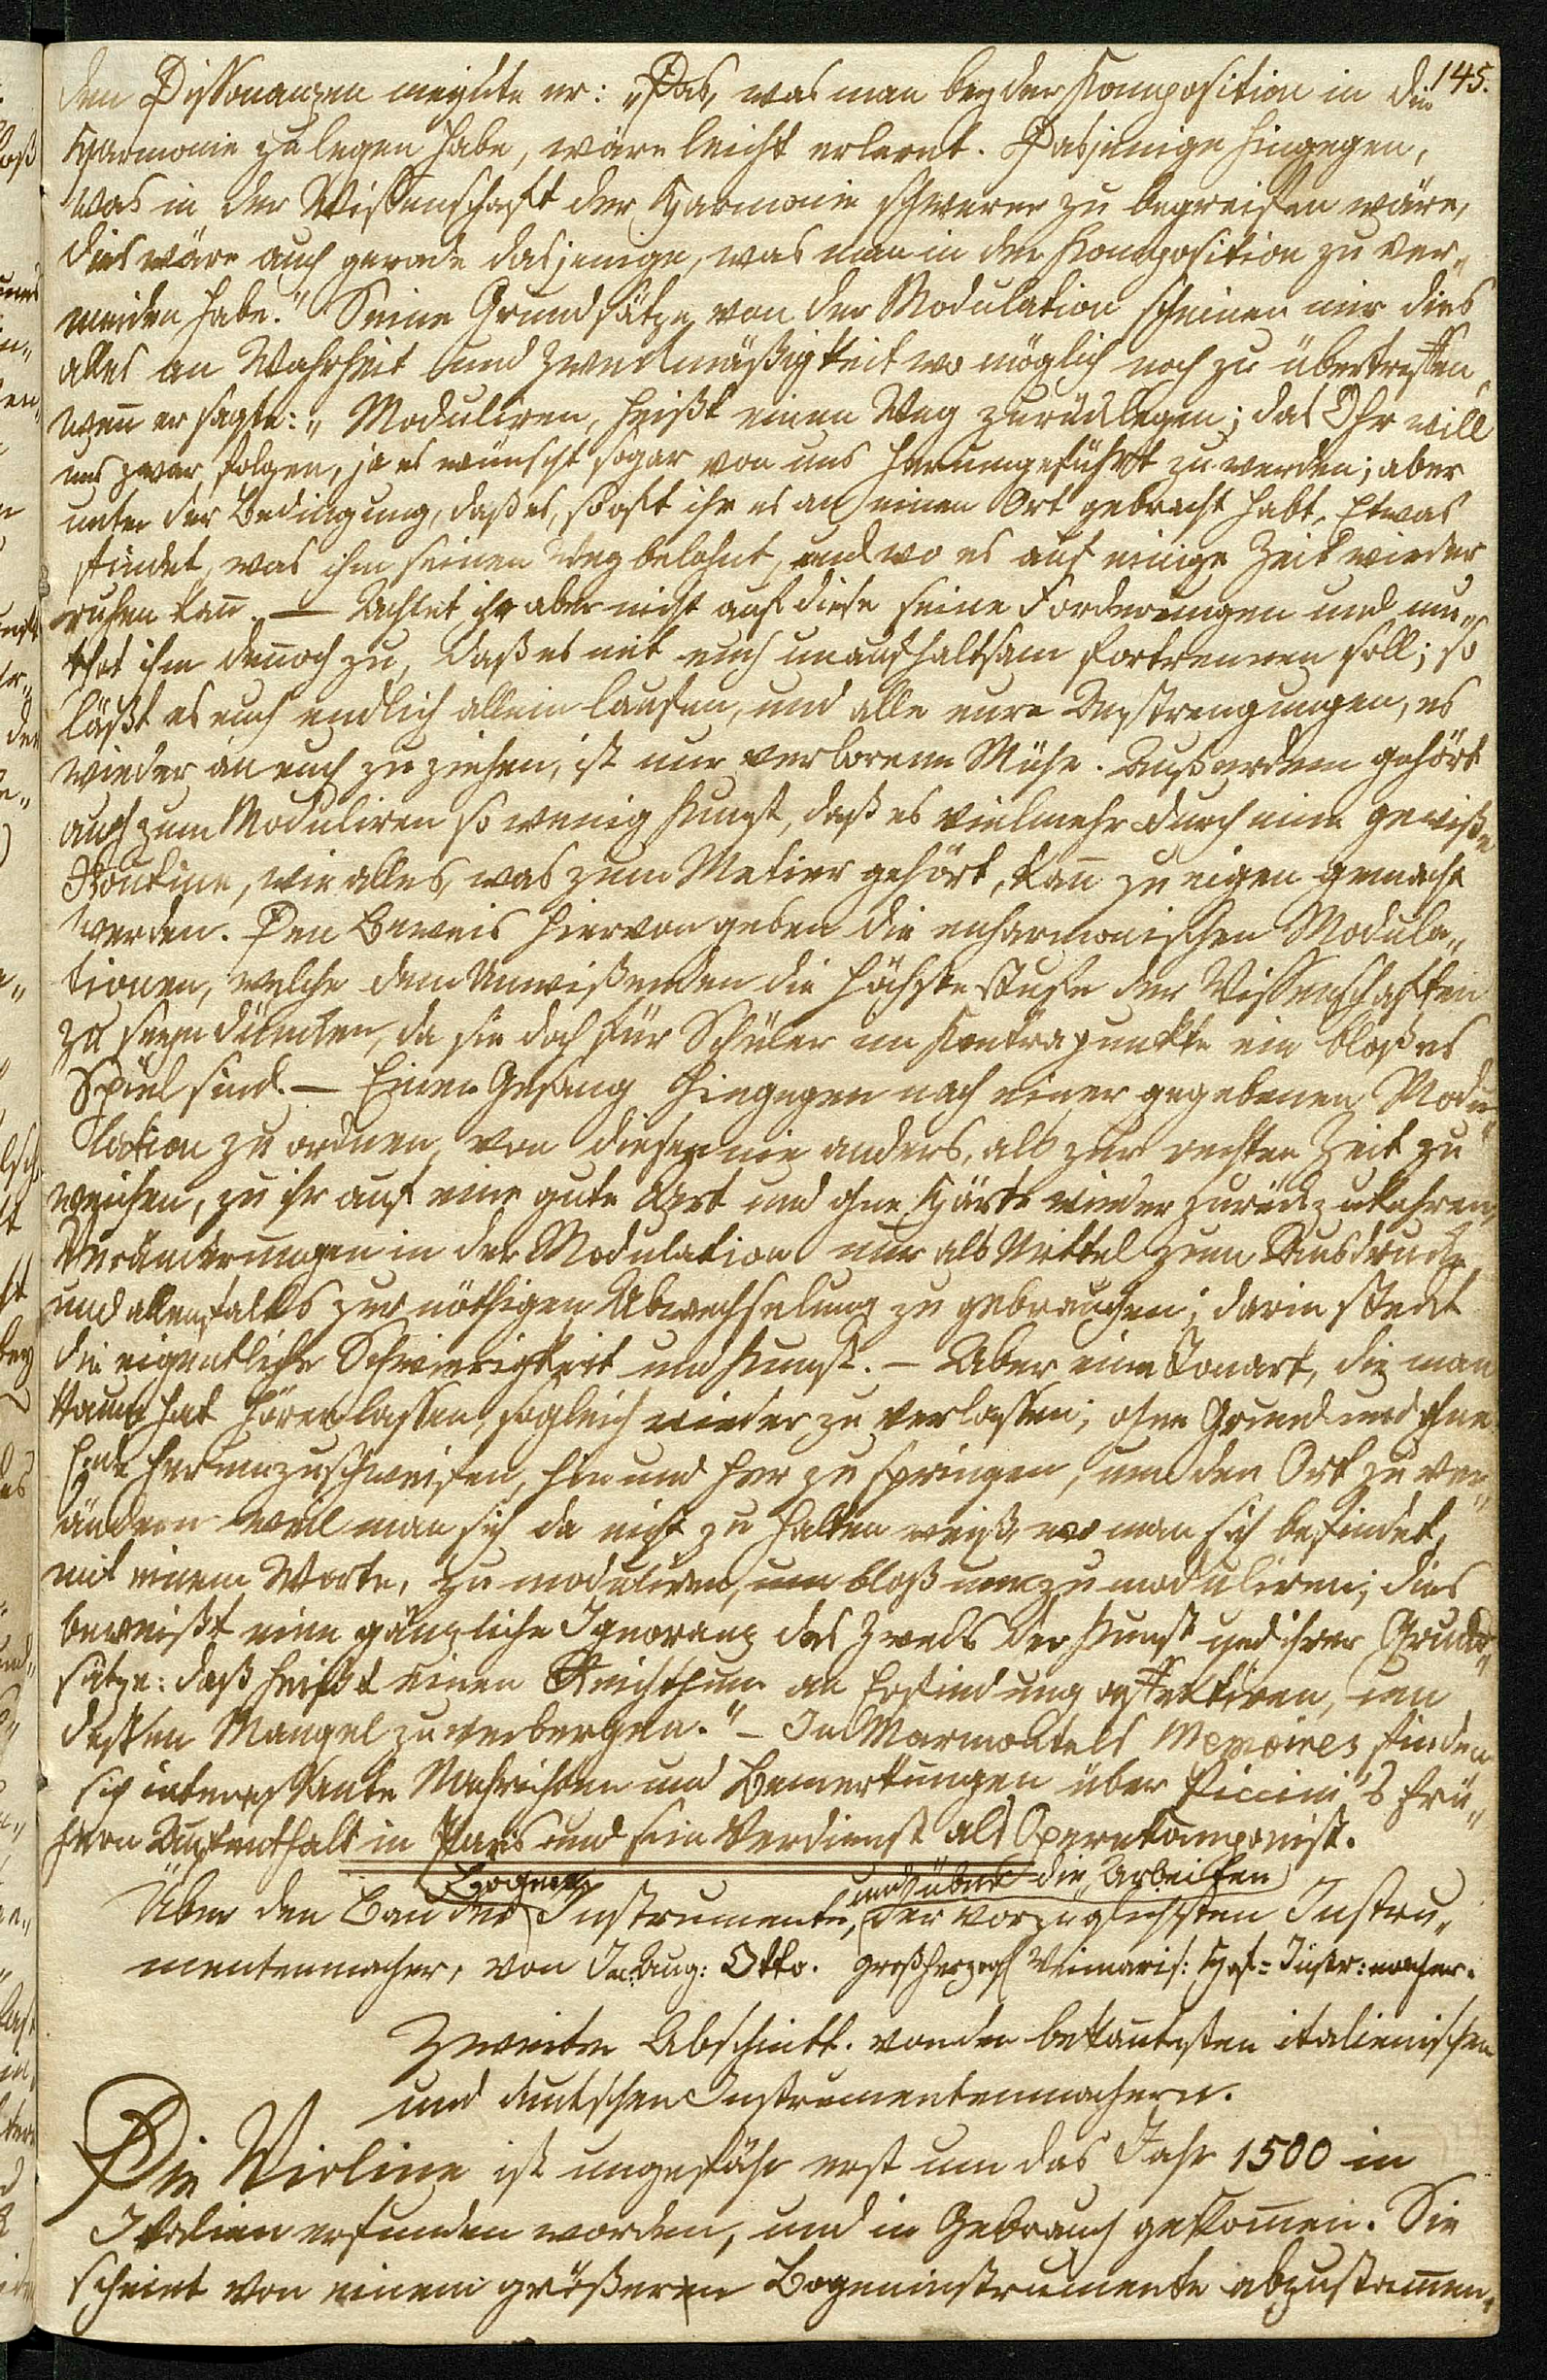 145.
den Dissonanzen meynte er: „Das, was man bey der Komposition in die
Harmonie zu legen habe, wäre leicht erlernt. Dasjenige hingegen,
was in der Wissenschaft der Harmonie schwerer zu begreifen wäre,
dies wäre auch gerade dasjenige, was man in der Komposition zu ver„
meiden habe.“ Seine Grundsätze von der Modulation scheinen mir dies
alles an Wahrheit und Zweckmäßigkeit wo möglich noch zu übertreffen,
wen̄ er sagte: „Moduliren, heißt einen Weg zurücklegen; das Ohr will
uns zwar folgen, ja es wünscht sogar von uns herumgeführt zu werden; aber
unter der Bedingung, daß es, so oft ihr es an einen Ort gebracht habt, Etwas
findet, was ihm seinen Weg belohnt, und wo es auf einige Zeit wieder
ruhen kan̄. — Achtet ihr aber nicht auf diese seine Forderungen und mu„
thet ihm den̄och zu, daß es mit euch unaufhaltsam fortrennen soll; so
läßt es euch endlich allein laufen, und alle eure Anstrengungen, es
wieder an euch zu ziehen, ist nur verlorene Mühe. Außerdem gehört
auch zum Moduliren so wenig Kunst, daß es vielmehr durch eine gewiße
Routine, wie alles, was zum Metier gehört, kan̄ zu eigen gemacht
werden. Den Beweis hiervon geben die enharmonischen Modula„
tionen, welche dem Unwißenden die höchste Stufe der Wissenschaften
zu seyn dünken, da sie doch für Schüler im Kontrapunkte ein bloßes
Spiel sind. — Einen Gesang hingegen nach einer gegebenen Modu„
lation zu ordnen, von dieser nie anders, als zur rechten Zeit zu
weichen, zu ihr auf eine gute Art und ohne Härte wieder zurückzukehren,
Veränderungen in der Modulation nur als Mittel zum Ausdrucke
und allenfalls zur nöthigen Abwechselung zu gebrauchen; darin steckt
die eigentliche Schwierigkeit und Kunst. — Aber eine Tonart, die man
kaum hat hören lassen, sogleich wieder zu verlassen; ohne Grund und ohne
Ende herumzuschweifen, hin und her zu springen, um den Ort zu ver„
ändern weil man sich da nicht zu halten weiß, wo man sich befindet,
mit einem Worte, zu moduliren, um bloß um zu moduliren; dies
beweißt eine gänzliche Ignoranz des Zwecks der Kunst und ihrer Grund„
sätze: daß heißt einen Reichthum an Erfindung affektiren, um
dessen Mangel zu verbergen.“ — In Marmontels Memoires finden
sich interessante Nachrichten und Bemerkungen über Piccini's frü„
hern Aufenthalt in Paris und sein Verdienst als Opernkomponist.
Bogen und über die Arbeiten
Über den Bau der Instrumente, der vorzüglichsten Instru„
mentenmacher, von Jac. Aug: Otto. Großherzogl Weimaris: Hof=Instr: macher.
Zweiter Abschnitt. von den bekan̄testen italienischen
und deutschen Instrumentenmachern.
Die Violine ist ungefähr erst um das Jahr 1500 in
Italien erfunden worden, und in Gebrauch gekom̄en. Sie
scheint von einem größeren Bogeninstrumente abzustam̄en.